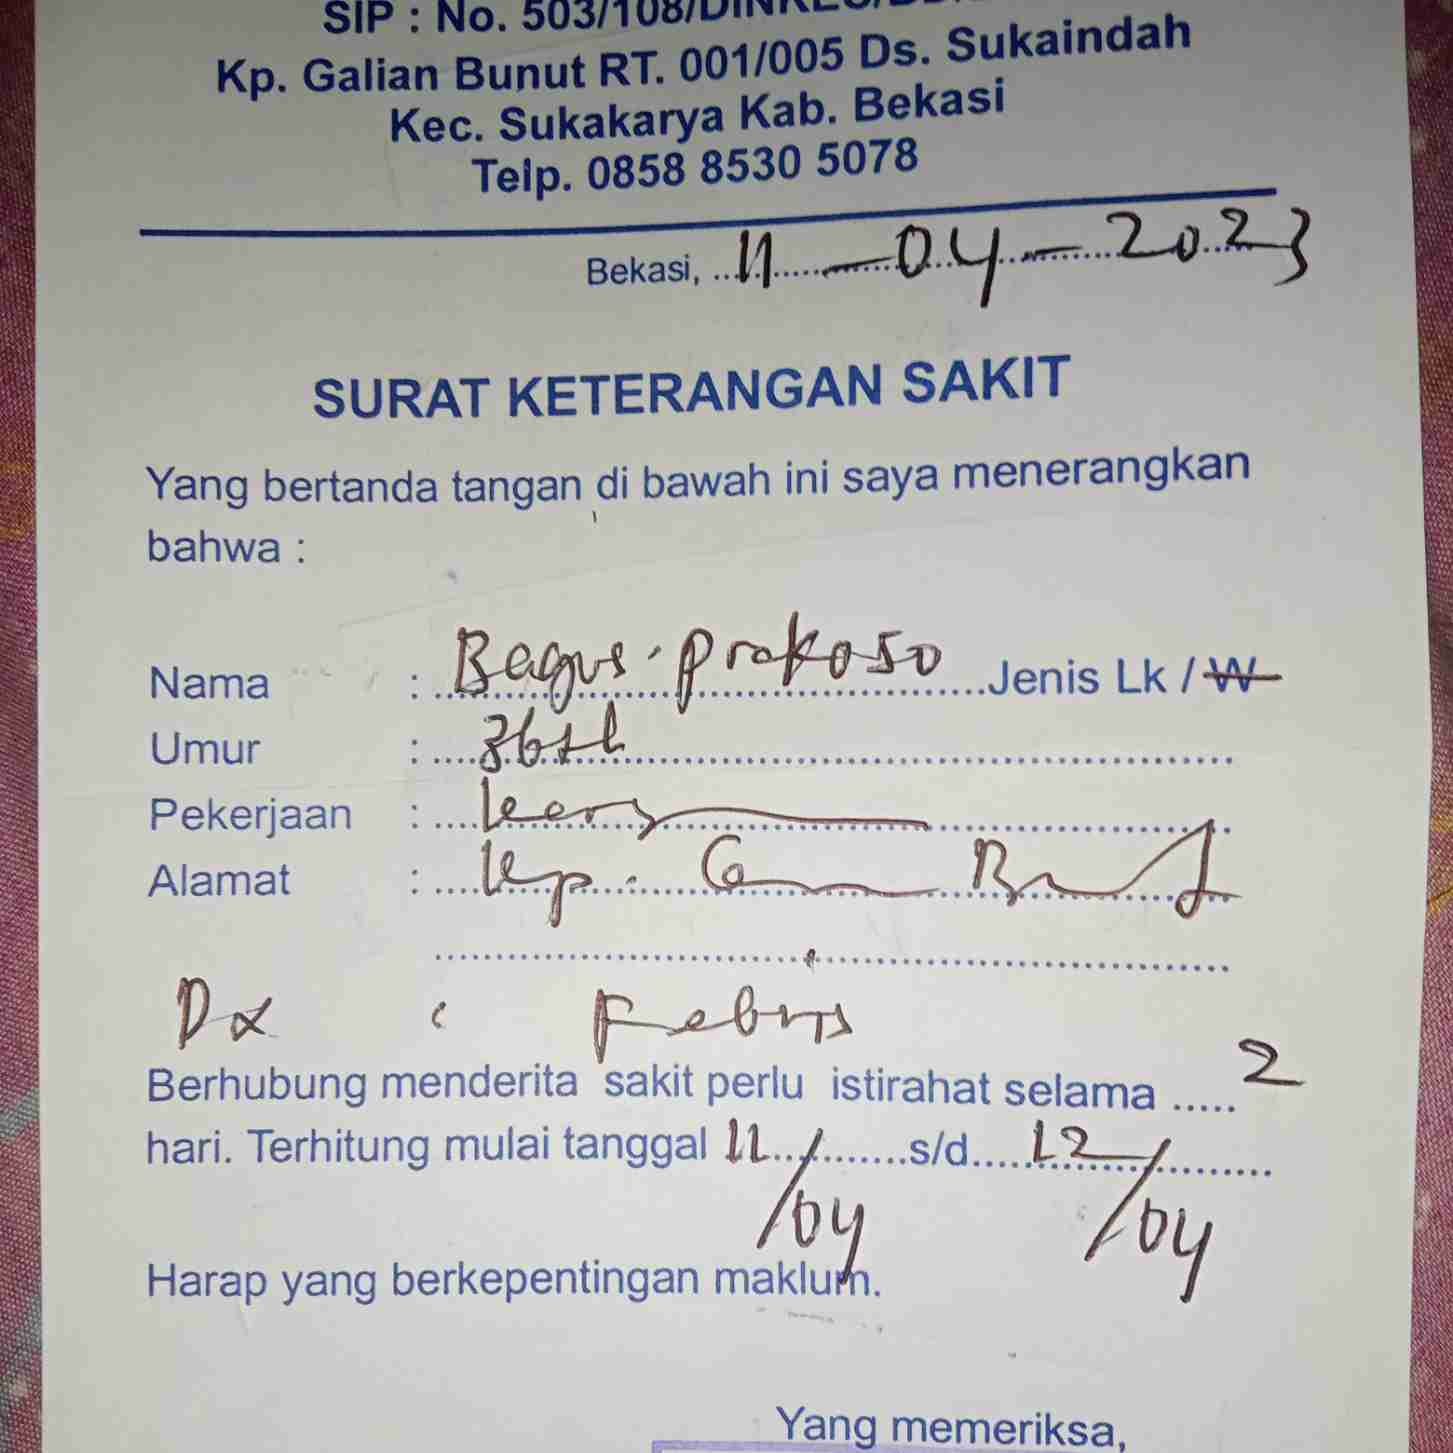 SIP : No. 503/108/DINKES/
Kp. Galian Bunut RT. 001/005 Ds. Sukaindah
Kec. Sukakarya Kab. Bekasi
Telp. 0858 8530 5078
Bekasi, 11 - 04 - 2023
SURAT KETERANGAN SAKIT
Yang bertanda tangan di bawah ini saya menerangkan
bahwa :
Nama : Bagus Prakoso Jenis Lk / W
Umur : 36 th
Pekerjaan :
Alamat : Kp.
Dx : Febris
Berhubung menderita sakit perlu istirahat selama ..... 2
hari. Terhitung mulai tanggal 11/04 s/d 12/04
Harap yang berkepentingan maklum.
Yang memeriksa,